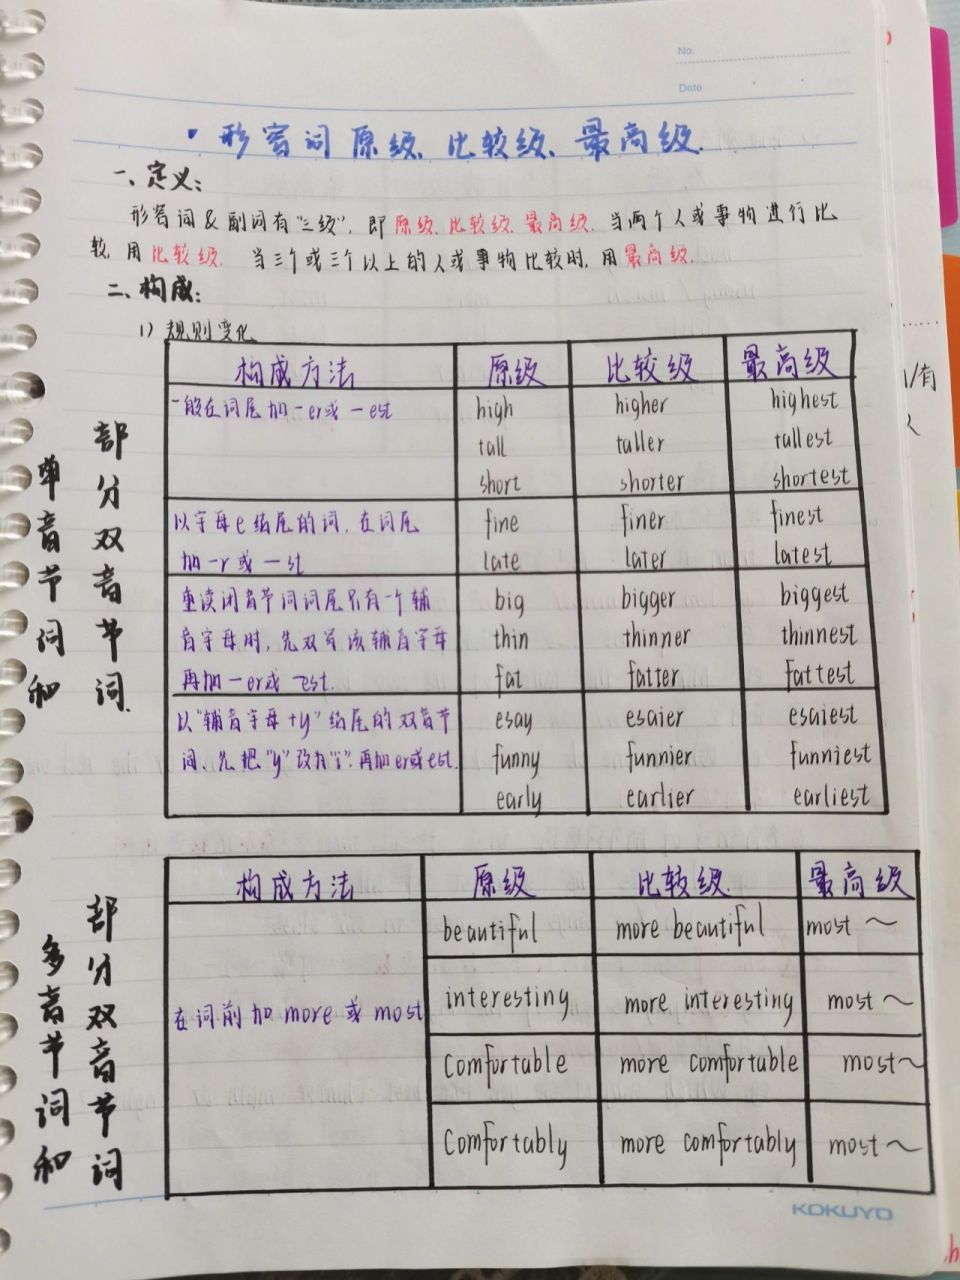 No.
Date
· 形容词原级、比较级、最高级.
一、定义：
形容词&副词有"三级"，即原级、比较级、最高级. 当两个人或事物进行比
较, 用比较级. 当三个或三个以上的人或事物比较时, 用最高级.
二、构成：
1) 规则变化
单音节词和
部分双音节词
构成方法 原级 比较级 最高级
一般在词尾加-er或-est high higher highest
tall taller tallest
short shorter shortest
以字母e结尾的词, 在词尾 fine finer finest
加-r或-st late later latest
重读闭音节词词尾只有一个辅 big bigger biggest
音字母时, 先双写该辅音字母 thin thinner thinnest
再加-er或-est. fat fatter fattest
以"辅音字母+y"结尾的双音节 esay esaier esaiest
词、先把"y"改为"i", 再加er或est. funny funnier funniest
early earlier earliest
多音节词和
部分双音节词
构成方法 原级 比较级 最高级
beautiful more beautiful most ~
在词前加more或most interesting more interesting most ~
Comfortable more comfortable most~
Comfortably more comfortably most ~
KOKUYO